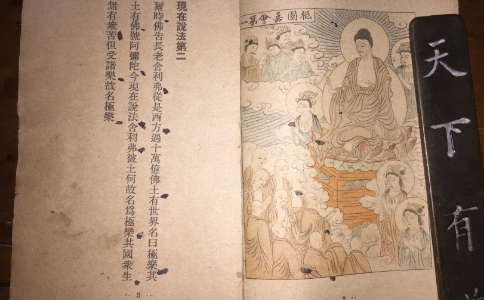 祇園嘉會第一
現在說法第二
爾時佛告長老舍利弗從是西方過十萬億佛土有世界名曰極樂其
土有佛號阿彌陀今現在說法舍利弗彼土何故名爲極樂其國衆生
無有衆苦但受諸樂故名極樂
天下有